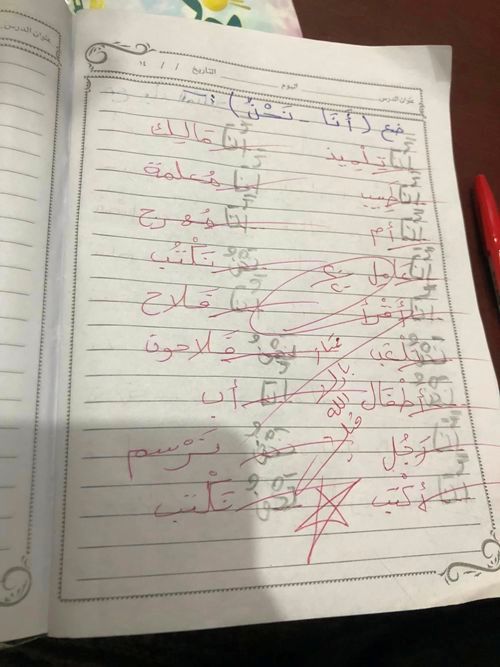 عنوان الدرس
عنوان الدرس اليوم التاريخ / / ١٤
ضع ( أَنَا - نَحْنُ )
أنا تلميذ أنا مالك
أنا طبيب أنا مُعلمة
أنا أم أنا مُهرج
أنا عامل نحن نَكْتُب
أنا أَقْرأُ أنا فلاح
نحن نلعَب نحن فلاحون
نحن أطفال أنا أب
أنا رَجُل نحن نَرْسم
أنا أَكْتب نحن نَكْتب
بارك الله